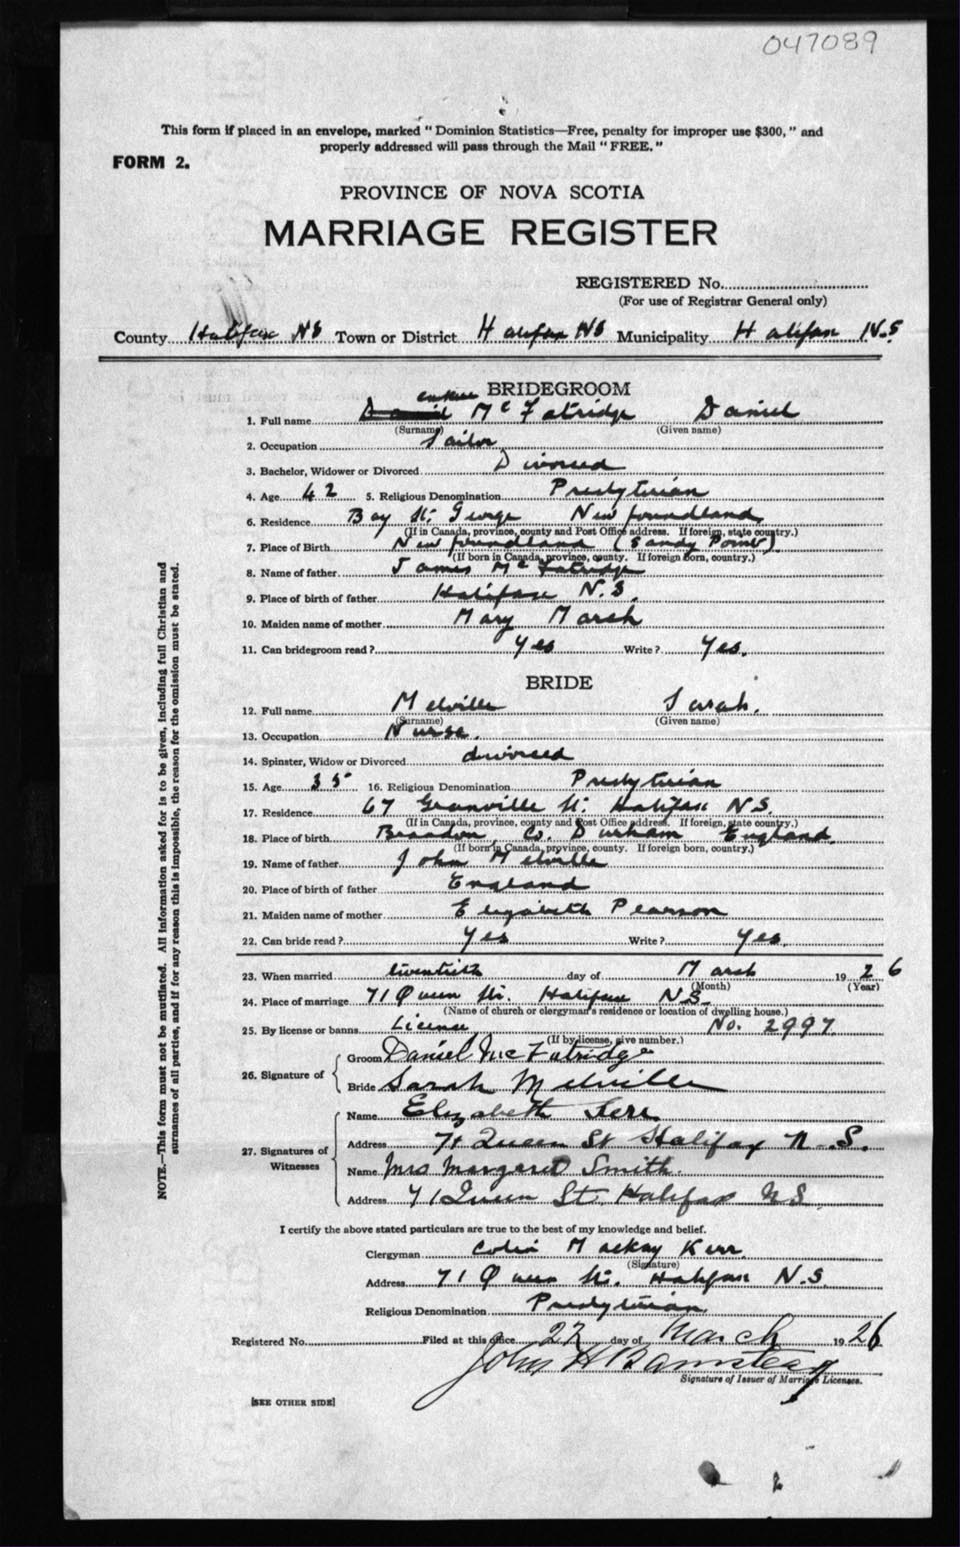 047089
This form if placed in an envelope, marked " Dominion Statistics—Free, penalty for improper use $300, " and
properly addressed will pass through the Mail " FREE. "
FORM 2.
PROVINCE OF NOVA SCOTIA
MARRIAGE REGISTER
REGISTERED No.
(For use of Registrar General only)
County Halifax NS Town or District Halifax NS Municipality Halifax N.S
BRIDEGROOM
1. Full name McFatridge Daniel
(Surname) (Given name)
2. Occupation
3. Bachelor, Widower or Divorced Divorced
4. Age 42 5. Religious Denomination Presbyterian
6. Residence Bay St. George Newfoundland
(If in Canada, province, county and Post Office address. If foreign, state country.)
7. Place of Birth Newfoundland (Sandy Point)
(If born in Canada, province, county. If foreign born, country.)
8. Name of father James McFatridge
9. Place of birth of father Halifax N.S.
10. Maiden name of mother Mary March
11. Can bridegroom read? Yes Write? Yes.
BRIDE
12. Full name Melville Sarah.
(Surname) (Given name)
13. Occupation Nurse.
14. Spinster, Widow or Divorced divorced
15. Age 35 16. Religious Denomination Presbyterian
17. Residence 67 Granville St. Halifax N.S.
(If in Canada, province, county and Post Office address. If foreign, state country.)
18. Place of birth Co. Durham England.
(If born in Canada, province, county. If foreign born, country.)
19. Name of father John Melville
20. Place of birth of father England
21. Maiden name of mother Elizabeth Pearson
22. Can bride read? Yes Write? Yes.
23. When married twentieth day of March 1926
(Month) (Year)
24. Place of marriage 71 Queen St. Halifax N.S.
(Name of church or clergyman's residence or location of dwelling house.)
25. By license or banns License No. 2997
(If by license, give number.)
26. Signature of
Groom Daniel McFatridge
Bride Sarah Melville
27. Signatures of Witnesses
Name Elizabeth Kerr
Address 71 Queen St Halifax N.S.
Name Mrs Margaret Smith.
Address 71 Queen St. Halifax N.S.
I certify the above stated particulars are true to the best of my knowledge and belief.
Clergyman Colin Mackay Kerr
(Signature)
Address 71 Queen St. Halifax N.S.
Religious Denomination Presbyterian
Registered No. Filed at this office 22 day of March 1926
John H Barnstead
Signature of Issuer of Marriage Licenses.
[SEE OTHER SIDE]
NOTE.—This form must not be mutilated. All information asked for is to be given, including full Christian and
surnames of all parties, and if for any reason this is impossible, the reason for the omission must be stated.